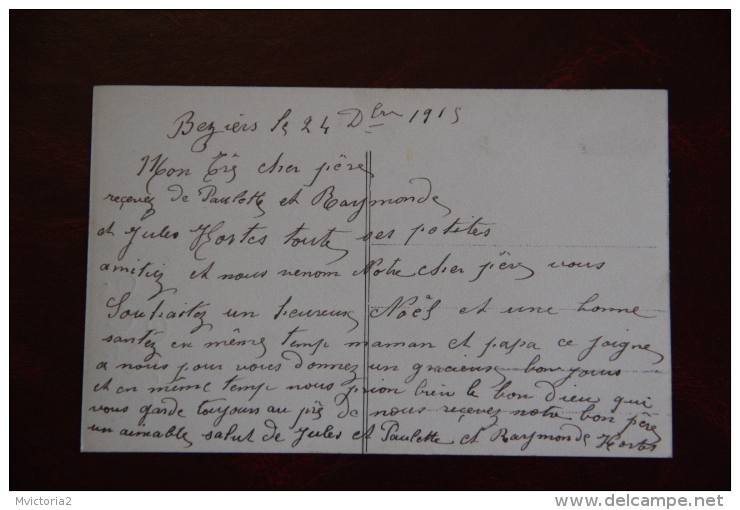 Beziers le 24 Dbre 1915
Mon très cher père
reçevez de Paulette et Raymonde
et Jules Hortes toute ses petites
amitiez et nous venom Notre cher père vous
Souhaitez un heureux Noël et une bonne
santéz en même temp maman et papa ce joigne
a nous pour vous donnez un gracieux bonjours
et en même temp nous prion bien le bon Dieu qui
vous garde toujours au près de nous reçevez notre bon père
un aimable salut de Jules et Paulette et Raymonde Hortes
Mvictoria2
http://www.delcampe.net